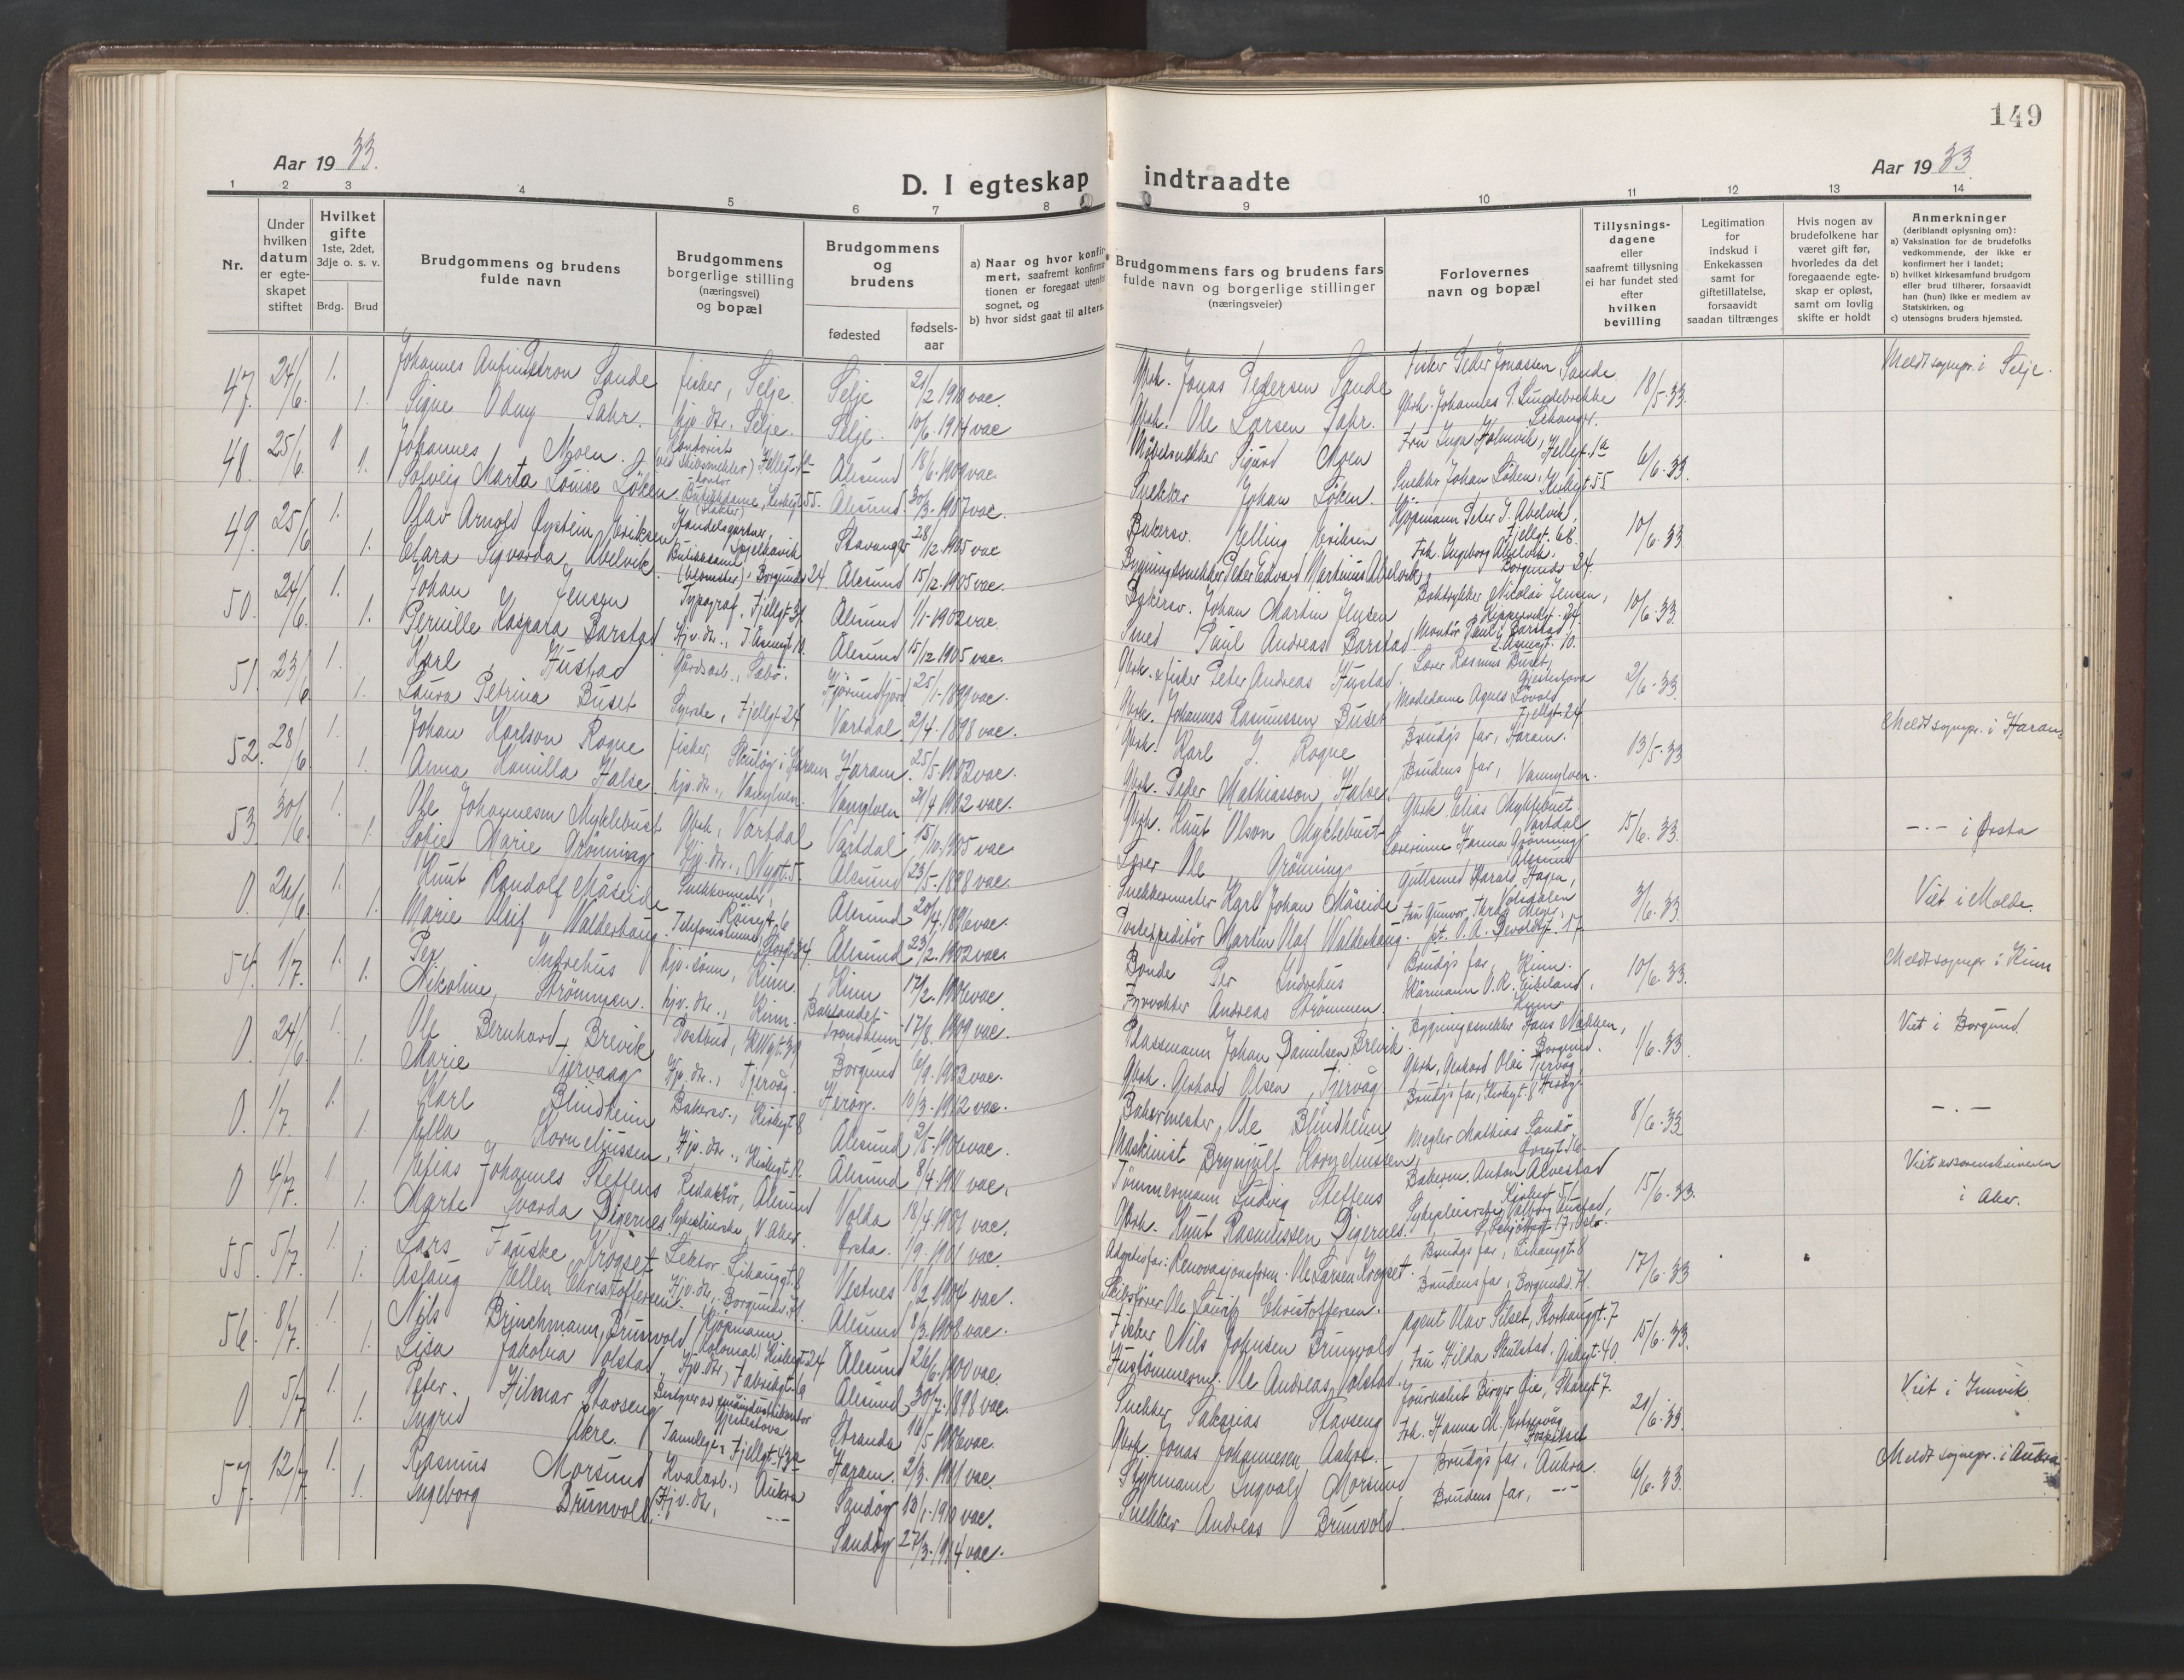 149
Aar 1933.
Aar 1933
D. I egteskap indtraadte
1 2 3 4 5 6 7 8 9 10 11 12 13 14
Nr.
Under hvilken datum er egteskapet stiftet
Hvilket gifte
1ste, 2det, 3dje o. s. v.
Brdg. Brud
Brudgommens og brudens fulde navn
Brudgommens borgerlige stilling (næringsvei) og bopæl
Brudgommens og brudens
fødested fødsels-aar
a) Naar og hvor konfir-
mert, saafremt konfirma-
tionen er foregaat utenfor
sognet, og
b) hvor sidst gaat til alters.
Brudgommens fars og brudens fars
fulde navn og borgerlige stillinger
(næringsveier)
Forlovernes navn og bopæl
Tillysnings-dagene eller saafremt tillysning ei har fundet sted efter hvilken bevilling
Legitimation for indskud i Enkekassen samt for giftetillatelse, forsaavidt saadan tiltrænges
Hvis nogen av brudefolkene har været gift før, hvorledes da det foregaaende egteskap er opløst, samt om lovlig skifte er holdt
Anmerkninger
(deriblandt oplysning om):
a) Vaksination for de brudefolks vedkommende, der ikke er konfirmert her i landet;
b) hvilket kirkesamfund brudgom eller brud tilhører, forsaavidt han (hun) ikke er medlem av Statskirken, og
c) utensogns bruders hjemsted.
47. 24/6. 1. Johannes Sande fisker, Selje. Selje 21/2 1910 vac. Gbrk. Jonas Pedersen Sande Fisker Peder Jonassen Sande 18/5-33. Meldt sognepr. i Selje.
1. Signe Odny Pahr. hjv. dtr., Selje. Selje. 10/6-1914 vac Gbrk. Ole Larsen Pahr. Gbrk. Johannes P. Sundebrekke
48. 25/6. 1 Johannes Moen. Kontorist Fjellgt. 1a Ålesund 18/6-1909 vac. Møbelsnekker Sigurd Moen Fru Inga Holmvik, Fjellgt. 1a 6/6-33.
1. Solveig Marta Louise Løken. Butikkdame, Kirkegt 55. Ålesund. 30/3-1907 vac. Snekker Johan Løken. Snekker Johan Løken, Kirkegt 55
49. 25/6 1. Olav Arnold Øystein Eriksen Handelsgartner, Spjelkavik Stavanger 28/12-1905 vac Bakersv. Elling Eriksen Kjøpmann Peter J. Abelvik, Fjellgt. 6B. 10/6-33
1. Clara Sgvarda Abelvik. Butikkdame (blomster), Borgundv 24. Ålesund 15/12-1905 vac. Bygningssnekker Peter Edvard Martinius Abelvik Frk. Ingeborg Abelvik, Borgundv 24.
50. 24/6. 1. Johan Jensen Typograf, Fjellgt. 31. Ålesund 1/1-1902 vac. Bakersv. Johan Martin Jensen Boktrykker Nicolai Jensen, 10/6-33.
1. Pernille Kaspara Barstad Hjv. dtr., Ålesund 15/12-1905 vac. Smed Paul Andreas Barstad Montør Paul Barstad
51. 23/6 1. Karl Hustad Gårdsarb., Sæbø. Hjørundfjord 25/1-1899 vac. Gbrk. & fisker Peter Andreas Hustad. Lærer Rasmus Buset, Gjestestova 2/6-33.
1. Laura Petrina Buset Syerske, Fjellgt. 24 Vartdal 2/4-1898 vac. Gbrk. Johannes Rasmussen Buset Motedame Agnes Løvold, Fjellgt. 24
52. 28/6 1. Johan Karlson Rogne fisker, Skuløy i Haram Haram. 25/5-1902 vac. Gbrk. Karl J. Rogne Brudgs far, Haram. 13/5-33 Meldt sognepr. i Haram
1. Anna Kamilla Halse hjv. dtr., Vanylven. Vanylven 21/4 1902 vac. Gbrk. Peder Mathiasson Halse. Brudens far, Vanylven.
53. 30/6. 1. Ole Johannesen Myklebust Gbrk, Vartdal Vartdal 15/10-1905 vac Gbrk. Knut Olson Myklebust Gbrk. Elias Myklebust. Vartdal 15/6-33. -.- i Ørsta
1. Sofie Marie Grønning Hjv. dtr., Nygt. 5. Ålesund 23/5-1898 vac. Lærer Ole Grønning Lærerinne Hanna Grønning, Ålesund
0. 26/6. 1. Knut Randolf Måseide Snekkermester, Røisegt. 6 Ålesund 20/4-1896 vac. Snekkermester Karl Johan Måseide Gullsmed Harald Hagen, Volsdalen 3/6-33. Viet i Molde.
1. Marie Olsif Walderhaug. Telefonistinne, Storgt. 34. Ålesund 23/2-1902 vac. Postexpeditør Martin Olaf Walderhaug. Fru Gunvor
54. 1/7. 1. Per Indrehus hjv. sønn, Kinn. Kinn 17/2-1906 vac Bonde Per Indrehus Brudgs far, Kinn. 10/6-33. Meldt sognepr. i Kinn
1. Nikoline Strømmen. hjv. dtr., Kinn. Baklandet Trondheim 17/8-1909 vac. Fyrvokter Andreas Strømmen.
0. 24/6. 1. Ole Bernhard Brevik Postbud, Borgund 6/9-1902 vac. Plassmann Johan Danielsen Brevik Bygningssnekker Hans Nakken, Borgund. 1/6-33. Viet i Borgund.
1. Marie Tjervaag Hjv. dtr., Tjervåg. Herøy. 10/3-1912 vac. Gbrk. Gerhard Olsen Tjervåg Gbrk. Gerhard Olai Tjervåg, Herøy.
0. 1/7. 1. Karl Blindheim Bakersv., Kirkegt. 8 Ålesund 2/5-1906 vac. Bakermester Ole Blindheim Brudgs far, Kirkegt. 8 8/6-33 -.-
1. Ella Korneliussen Hjv. dtr., Ålesund 8/4-1911 vac. Maskinist Brynjulf Korneliussen Megler Mathias Sandø,
0 4/7. 1 Elias Johannes Steffens Redaktør, Ålesund Volda 18/4-1901 vac. Tømmermann Ludvig Steffens Bakerm. Anton Alvestad 15/6-33.
1. Marte Gvarda Digernes. Sykepleierske, V. Aker. Ørsta. 1/9-1901 vac. Gbrk. Knut Rasmussen Digernes. i Aker.
55. 5/7. 1. Lars Fauske Krogset Lektor. Lihauggt. 8 Vestnes 18/2-1904 vac. Adoptivfar: Renovasjonsform. Ole Larsen Krogset. Brudgs far, Lihauggt. 8 17/6-33
1. Aslaug Ellen Christoffersen. Hjv. dtr., Borgundv. 71. Ålesund 8/3-1908 vac. Skibsfører Ole Lauritz Christoffersen. Brudens far, Borgundv. 71.
56. 8/7. 1. Nils Brinchmann Brunvold Kjøpmann (kolonial) Kirkegt. 24 Ålesund 26/6-1900 vac. Fisker Nils Johnsen Brunvold Agent Olav Silset, Storhauggt. 7 15/6-33.
1. Lisa Jakobia Volstad. Hjv. dtr., Fabrikkgt. Ålesund 30/7-1898 vac. Hustømmerm. Ole Andreas Volstad. Fru Hilda Skulstad, 40.
0. 5/7 1. Peter Hilmar Stavseng Gjestestova Stranda 16/5-1906 vac. Snekker Sakarias Stavseng Journalist Birger Gie, Skaregt 7. 21/6-33. Viet i Innvik
1. Ingrid Akre. Tannlege, Fjellgt. Haram. 2/3-1901 vac. Gbrk. Jonas Johannesen Aakre. Frk. Hanna M.
57. 12/7. 1. Rasmus Morsund Kvalarb., Aukra Sandøy 13/1-1910 vac. Styrmann Ingvald Morsund Brudgs far, Aukra. 6/6-33. Meldt sognepr. i Aukra.
1. Ingeborg Brunvold. Hjv. dtr., -.- Sandøy 27/3-1914 vac. Snekker Andreas O Brunvold. Brudens far, -.-